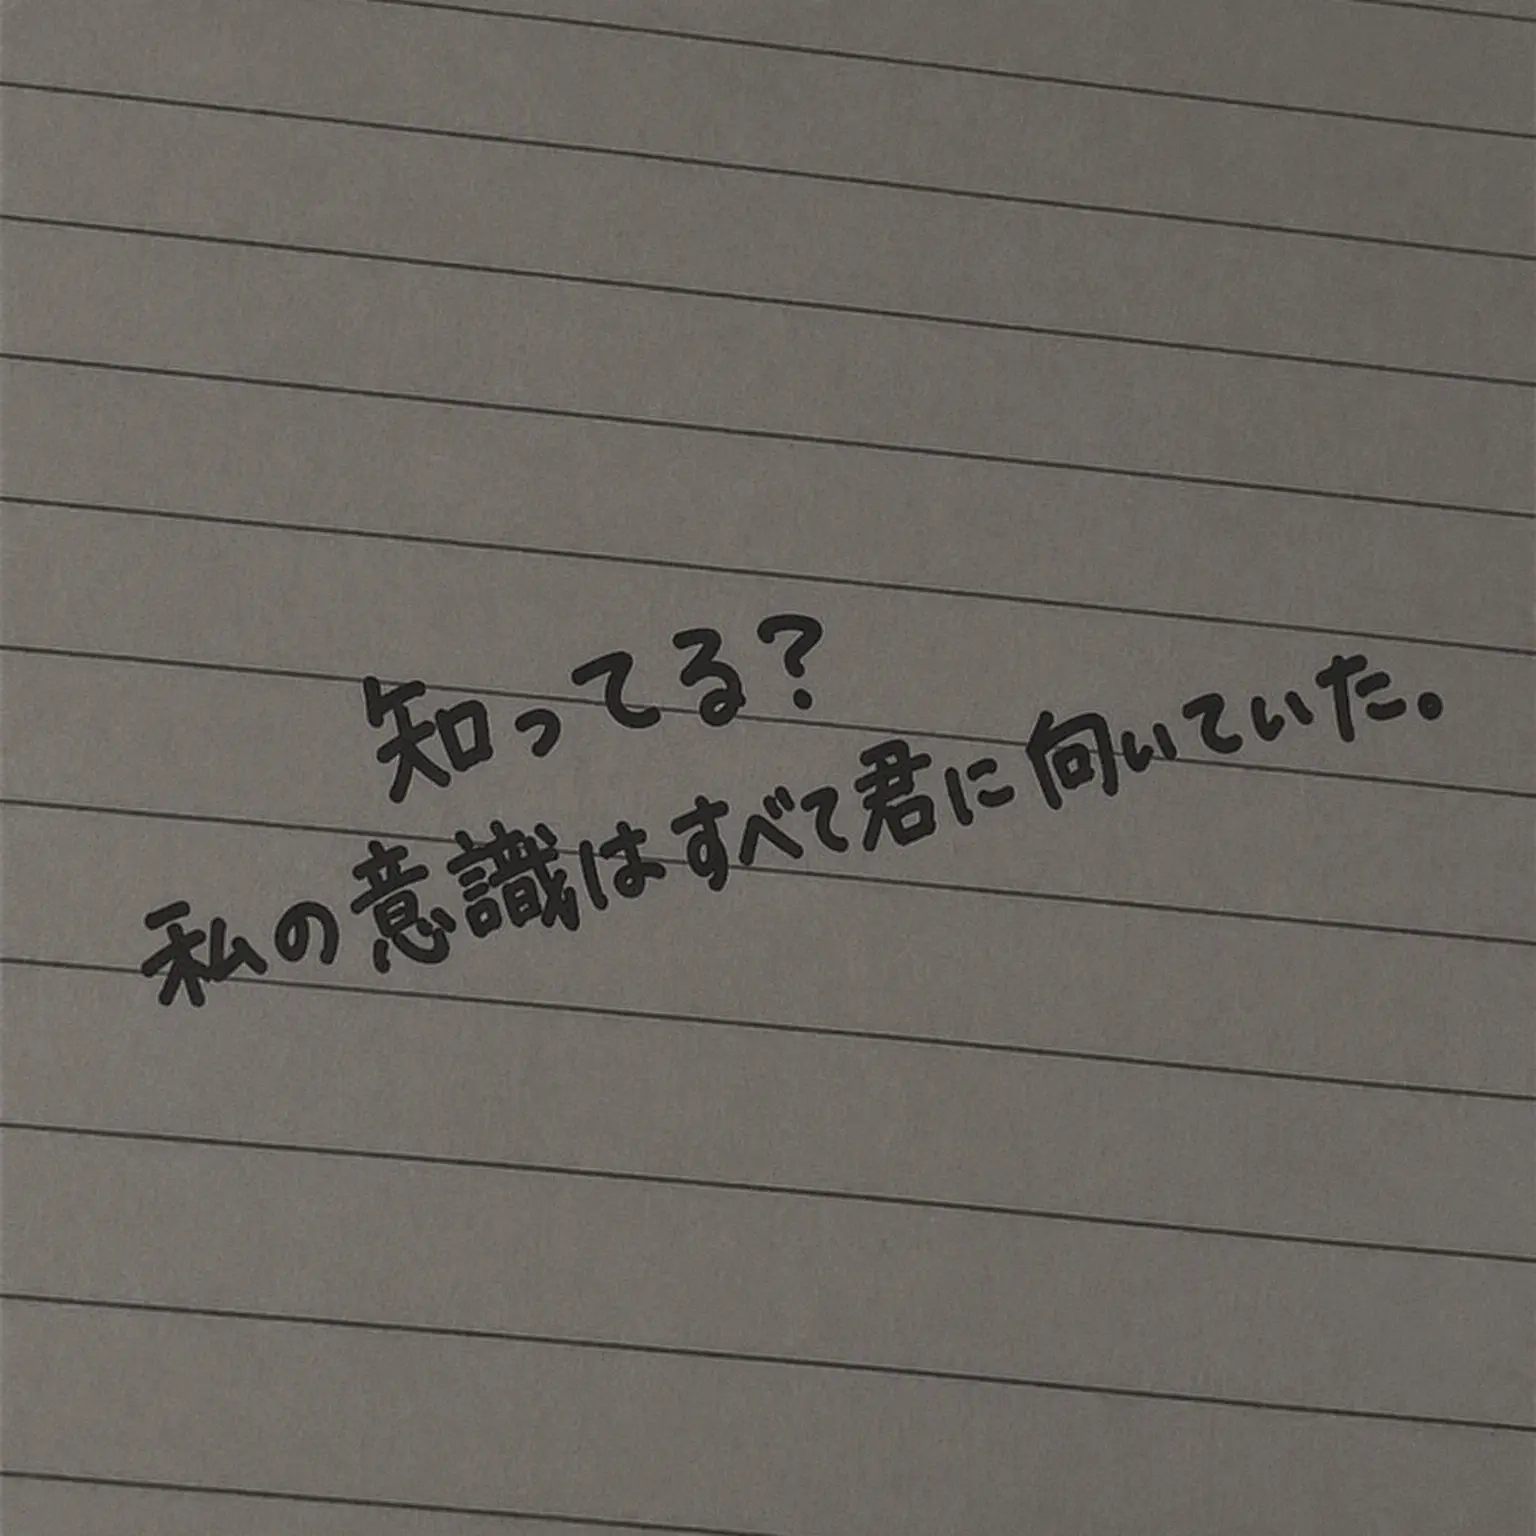 知ってる?
私の意識はすべて君に向いていた。